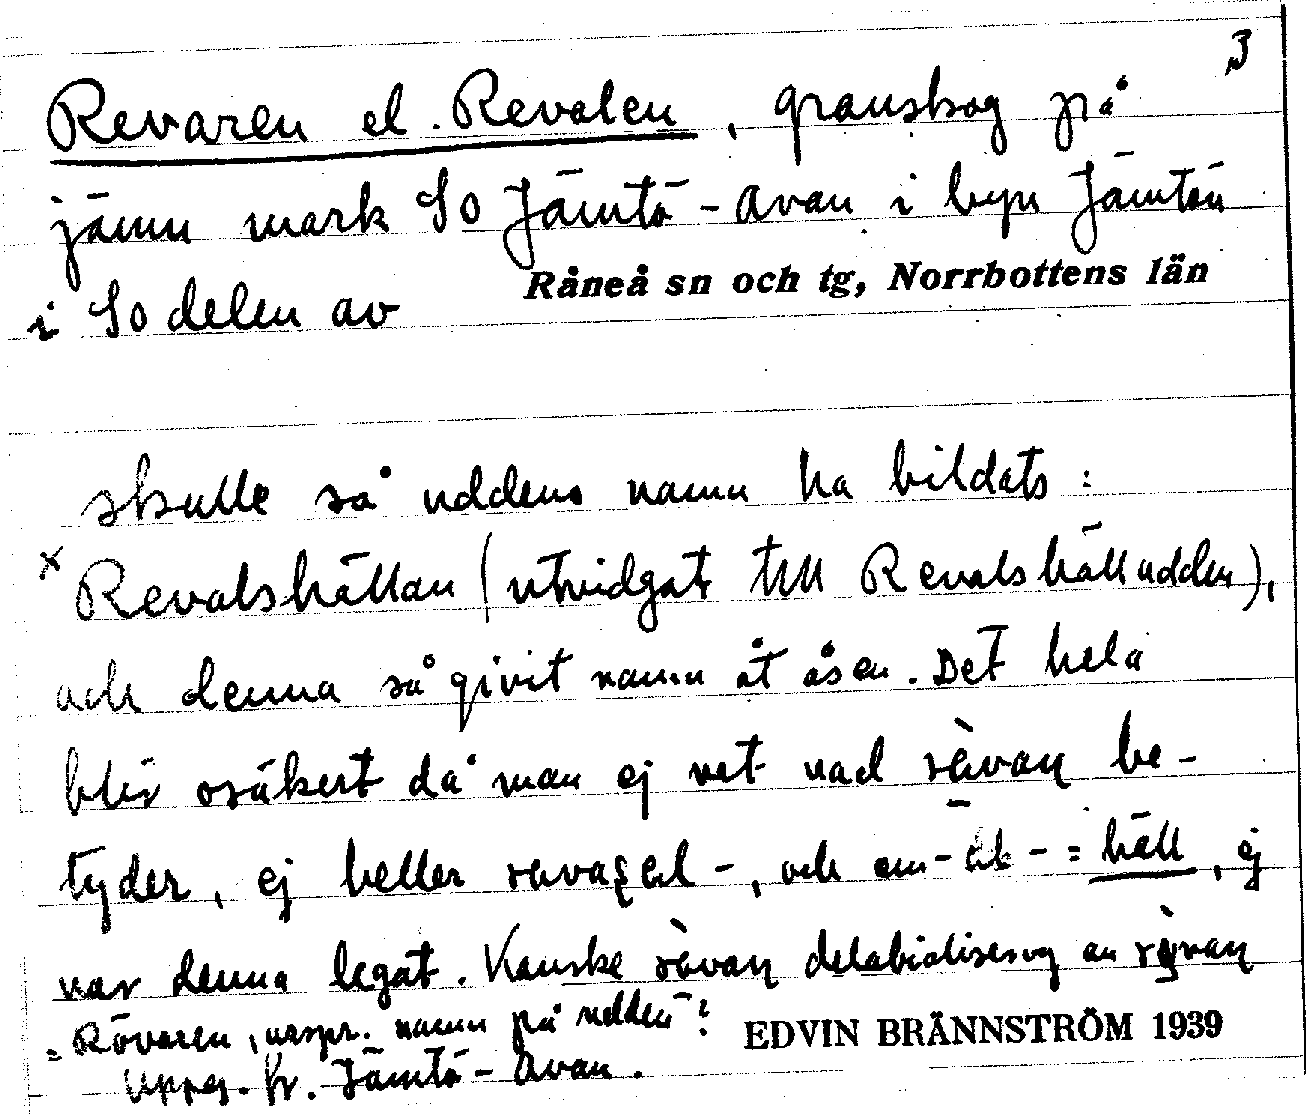 3
Revaren el. Revalen, granskog på
jämn mark SO Jämtö-Avan i byn Jämtön
Råneå sn och tg, Norrbottens län
i SO delen av
skulle så uddens namn ha bildats:
x Revalshällan (utvidgat till Revalshälludden),
och denna så givit namn åt åsen. Det hela
blir osäkert då man ej vet vad rèvaṇ be-
tyder, ej heller, och om = häll, ej
var denna legat. Kanske rèvaṇ delabialisering av
= Rövaren, urspr. namn på udden?
EDVIN BRÄNNSTRÖM 1939
Uppg. fr. Jämtö-Avan.